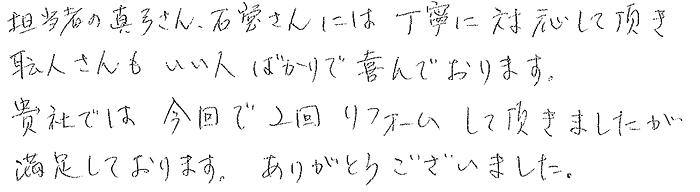 担当者の真弓さん、石窪さんには 丁寧に対応して頂き
職人さんも いい人ばかりで喜んでおります。
貴社では 今回で2回リフォームして頂きましたが
満足しております。ありがとうございました。